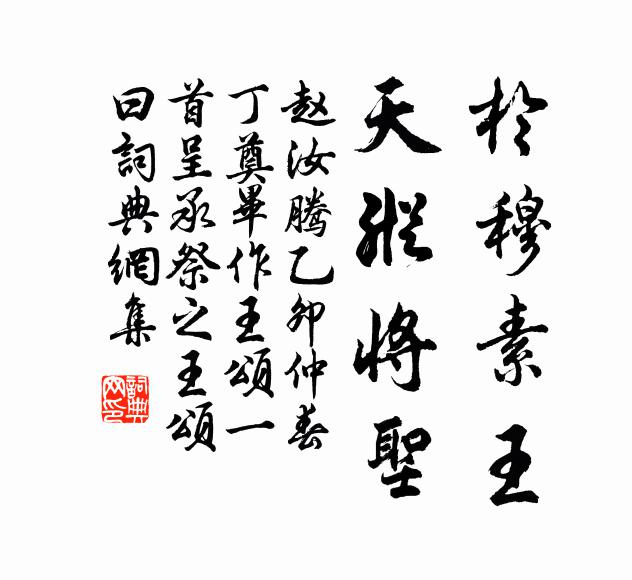 於穆素王
天縱將聖
赵汝騰乙卯仲春
丁奠畢作王頌一
首呈承祭之王頌
曰詞典網集
詞典
网印